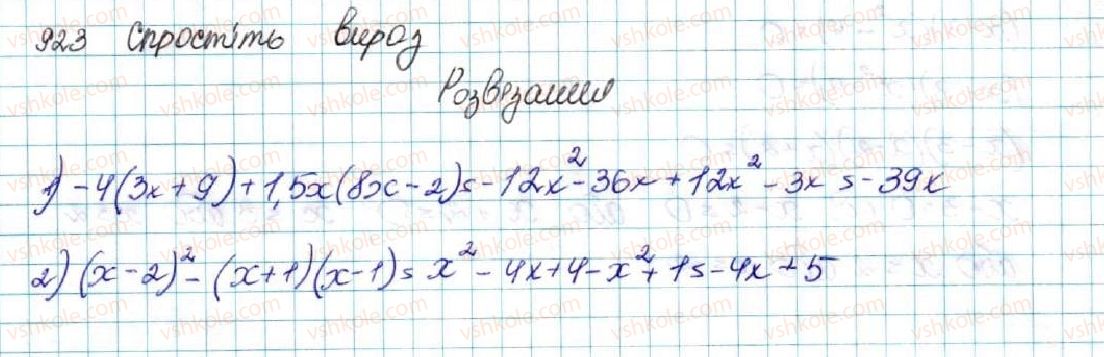 923 Спростіть вираз
Розв'язання
1) -4(3x+9)+1,5x(8x-2)= -12x²-36x+12x²-3x = -39x
2) (x-2)²-(x+1)(x-1)= x²-4x+4-x²+1= -4x+5